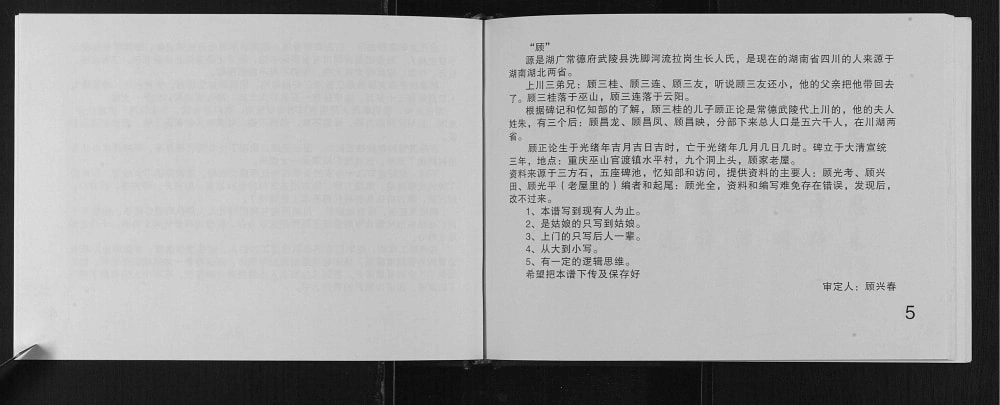 “顾”
源是湖广常德府武陵县洗脚河流拉岗生长人氏，是现在的湖南省四川的人来源于
湖南湖北两省。
上川三弟兄：顾三桂、顾三连、顾三友，听说顾三友还小，他的父亲把他带回去
了。顾三桂落于巫山，顾三连落于云阳。
根据碑记和忆知部的了解，顾三桂的儿子顾正论是常德武陵代上川的，他的夫人
姓朱，有三个后：顾昌龙、顾昌凤、顾昌映，分部下来总人口是五六千人，在川湖两
省。
顾正论生于光绪年吉月吉日吉时，亡于光绪年几月几日几时。碑立于大清宣统
三年，地点：重庆巫山官渡镇水平村，九个洞上头，顾家老屋。
资料来源于三方石，五座碑池，忆知部和访问，提供资料的主要人：顾光考、顾兴
田、顾光平（老屋里的）编者和起尾：顾光全，资料和编写难免存在错误，发现后，
改不过来。
1、本谱写到现有人为止。
2、是姑娘的只写到姑娘。
3、上门的只写后人一辈。
4、从大到小写。
5、有一定的逻辑思维。
希望把本谱下传及保存好
审定人：顾兴春
5